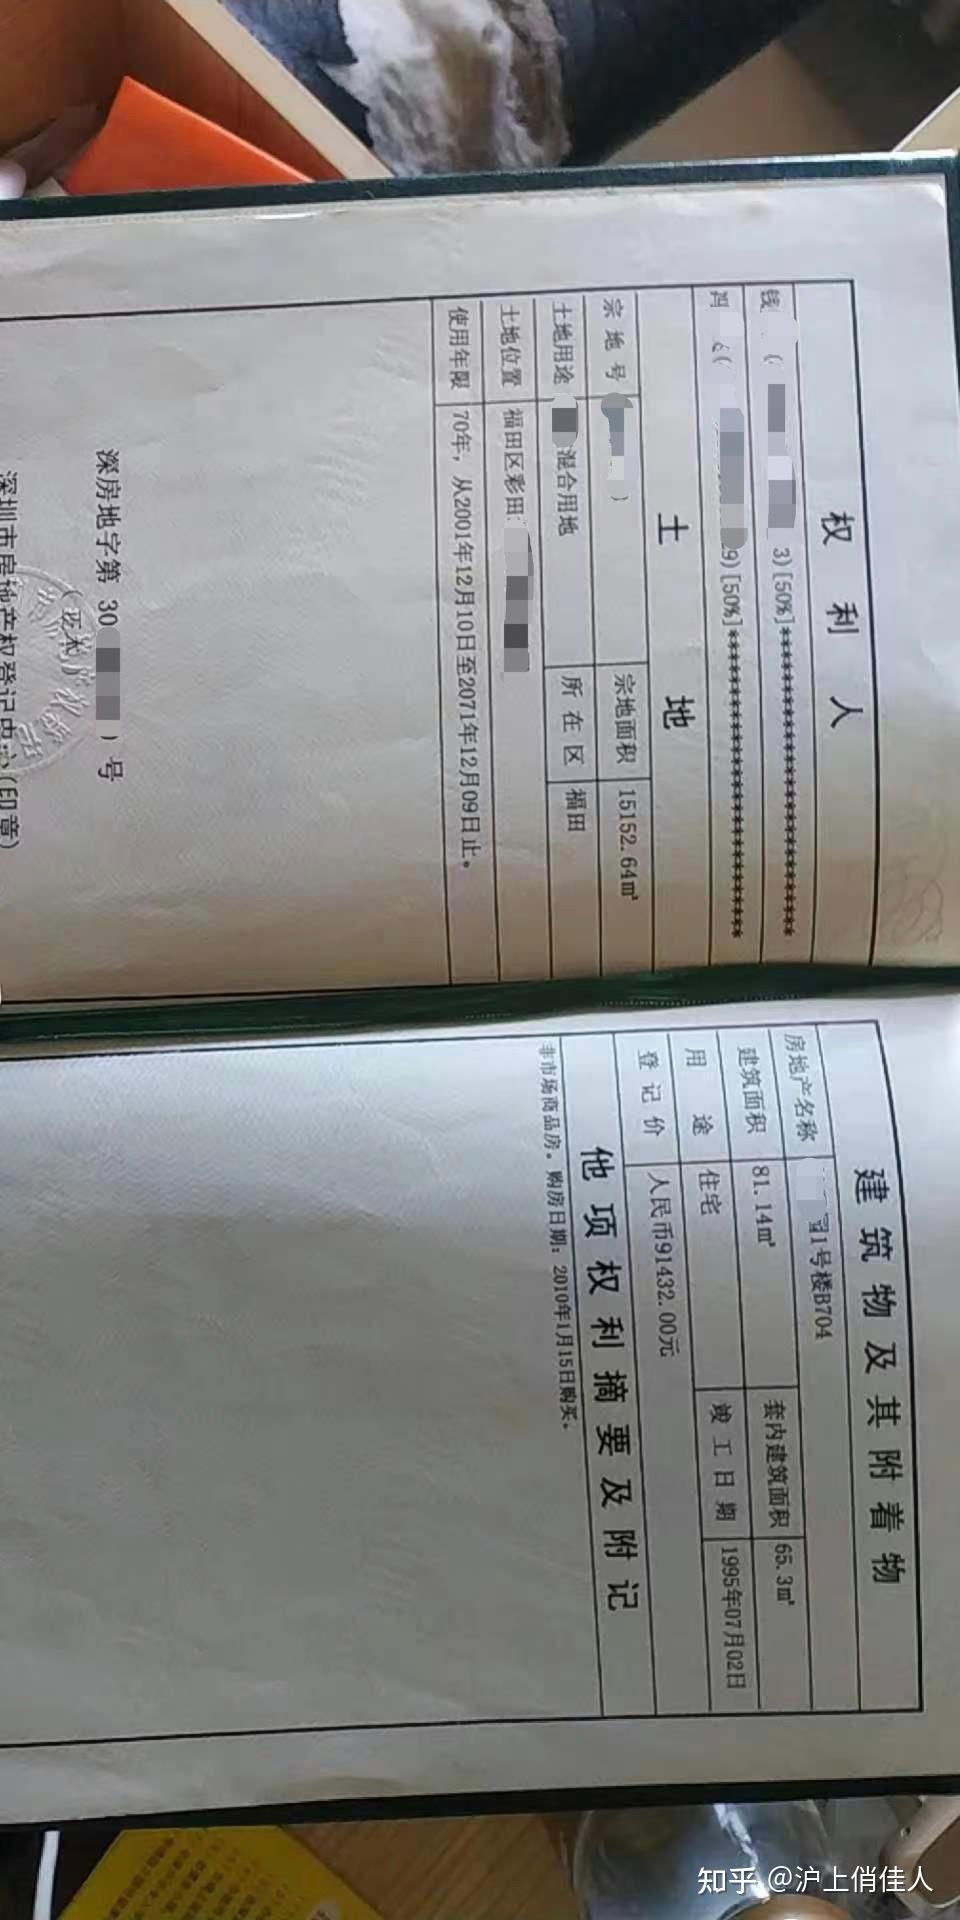 权利人
钱 ( 3)[50%]**********************
9)[50%]**********************
土地
宗地号 ) 宗地面积 15152.64㎡
土地用途 混合用地 所在区 福田
土地位置 福田区彩田
使用年限 70年，从2001年12月10日至2071年12月09日止。
深房地字第 30 ) 号
深圳市房地产权登记中心(印章)
建筑物及其附着物
房地产名称 1号楼B704
建筑面积 81.14㎡ 套内建筑面积 65.3㎡
用途 住宅 竣工日期 1995年07月02日
登记价 人民币91432.00元
他项权利摘要及附记
非市场商品房。购房日期：2010年1月15日购买。
知乎 @沪上俏佳人